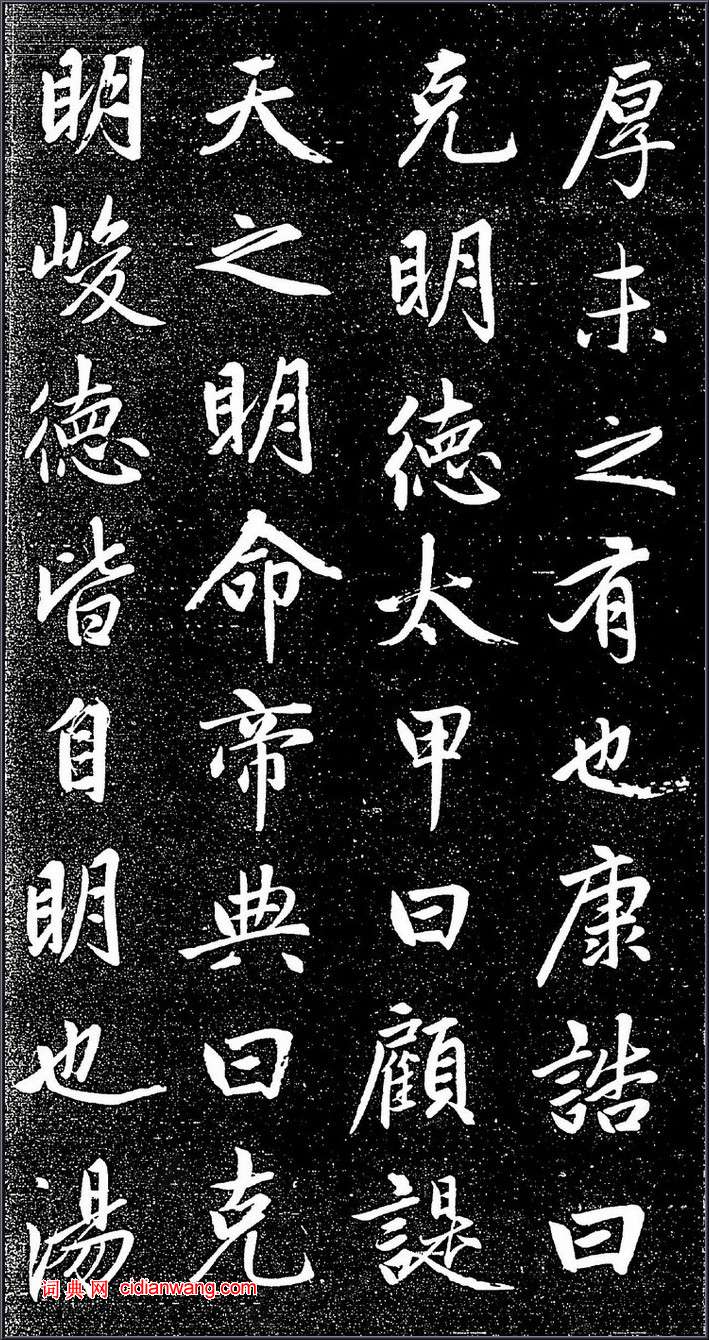 厚未之有也康誥曰
克明德太甲曰顧諟
天之明命帝典曰克
明峻德皆自明也湯
词典网 cidianwang.com